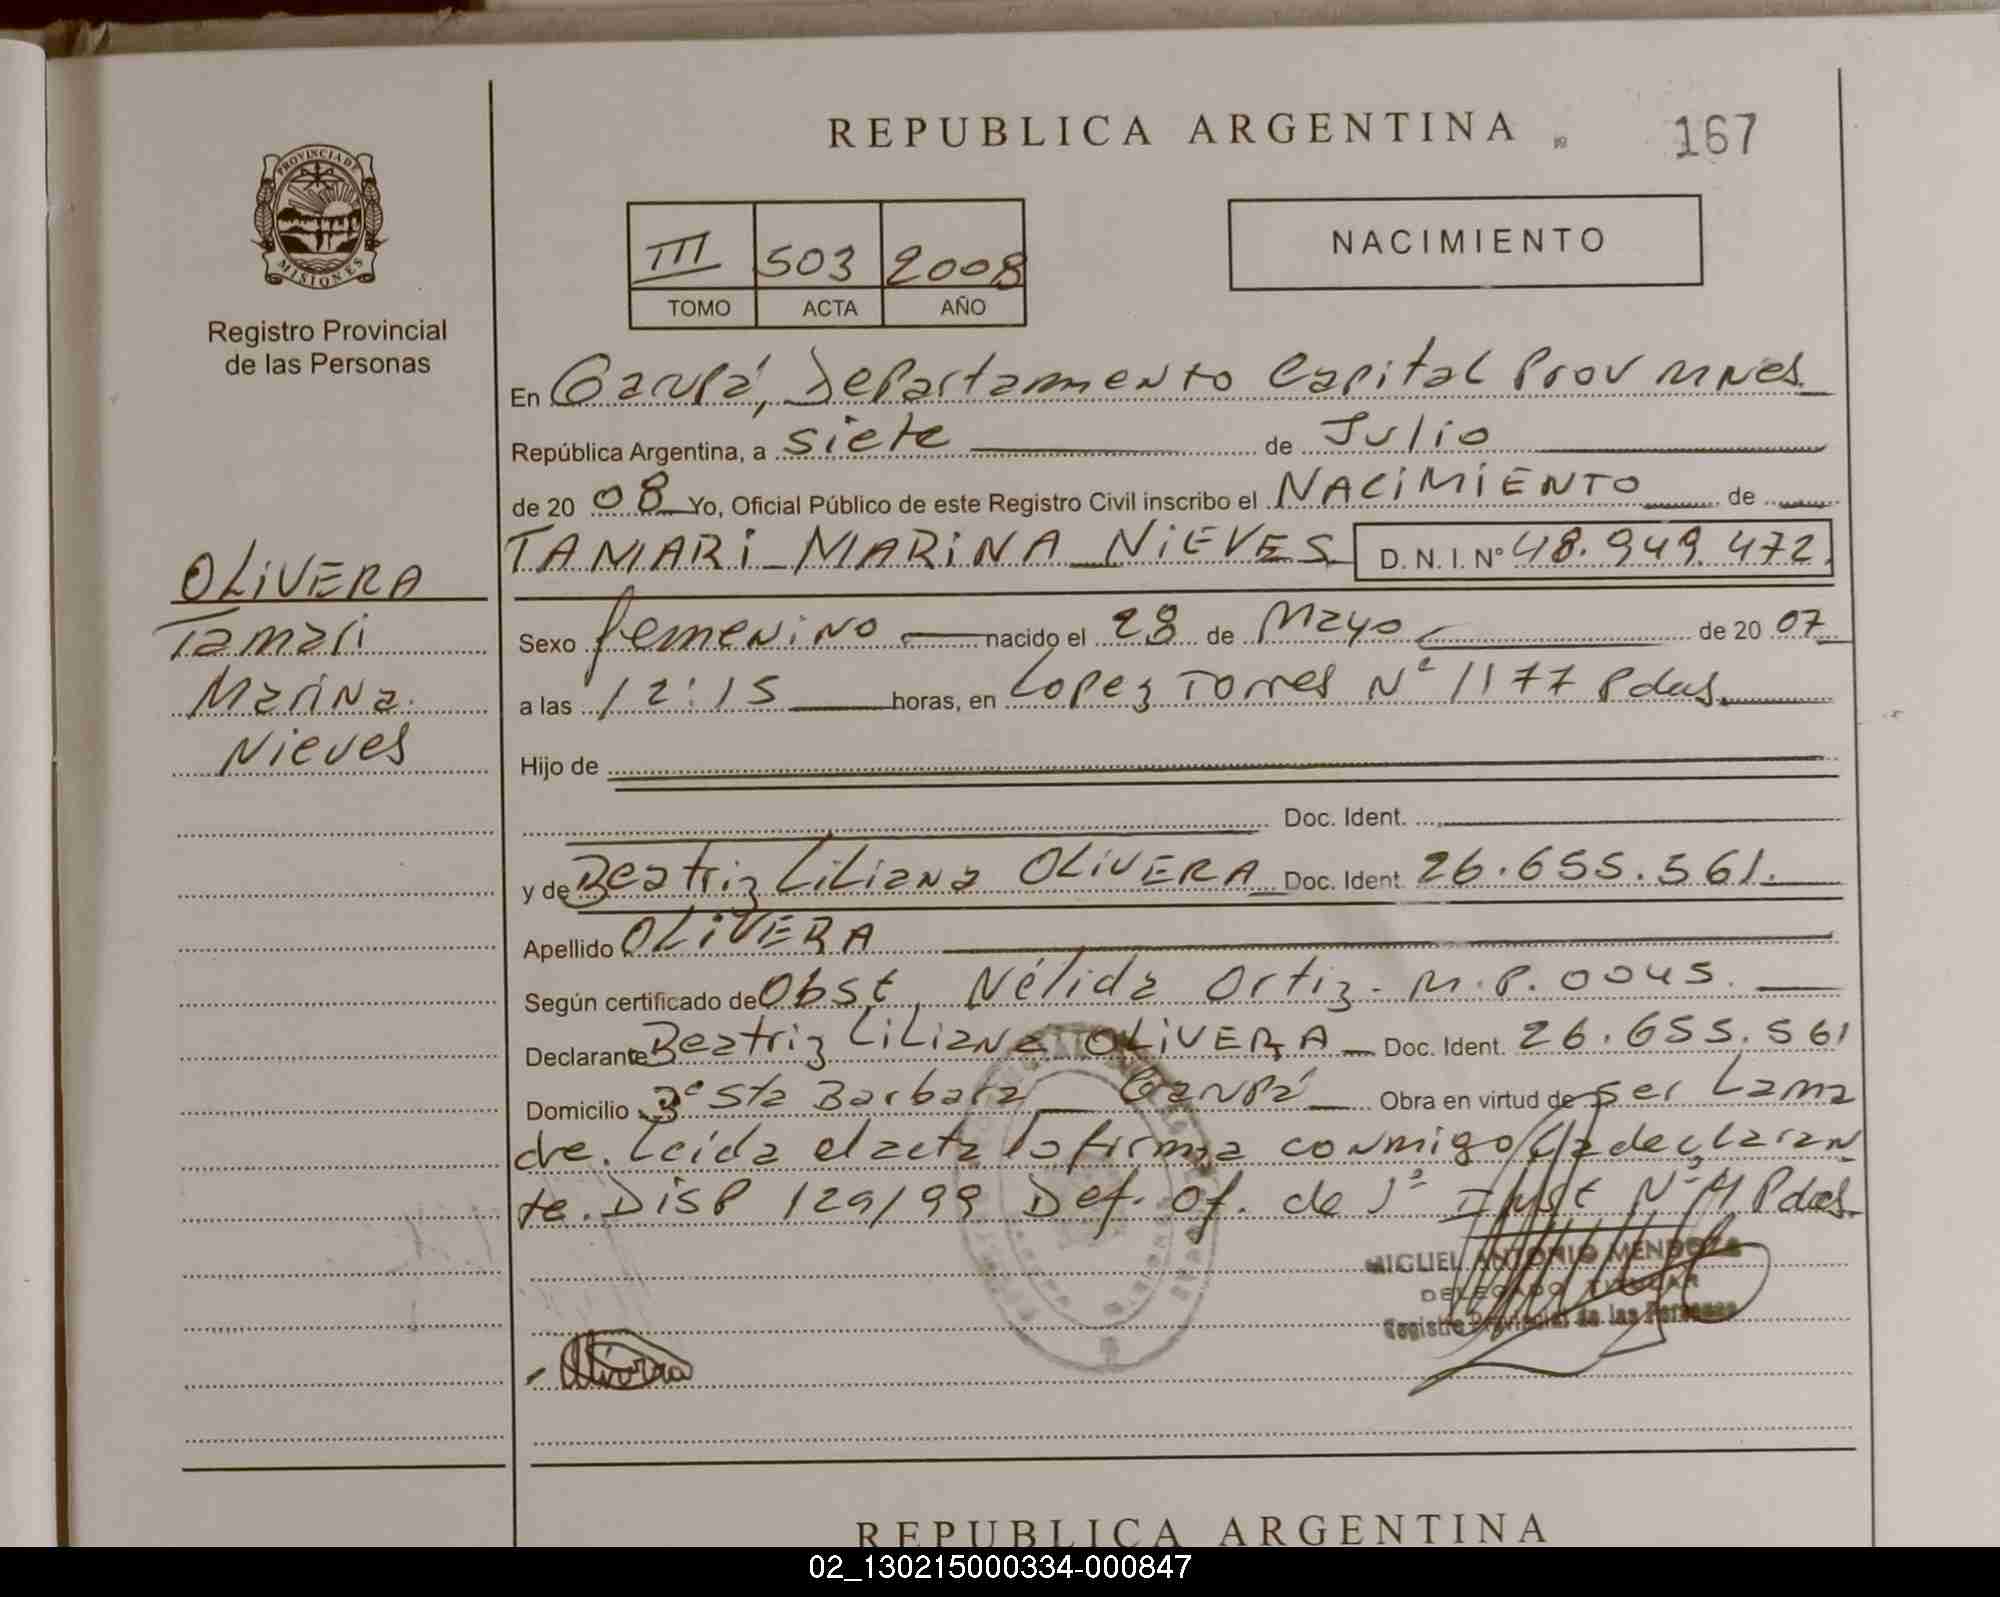 REPUBLICA ARGENTINA
167
PROVINCIA DE
MISIONES
Registro Provincial
de las Personas
III 503 2008
TOMO ACTA AÑO
NACIMIENTO
En Garupá, Departamento Capital Prov Mnes.
República Argentina, a siete de Julio
de 20 08 Yo, Oficial Público de este Registro Civil inscribo el NACIMIENTO de
TAMARI MARINA NIEVES D. N. I. Nº 48.949.472.
OLIVERA
Tamari
Marina
Nieves
Sexo femenino nacido el 28 de Mayo de 20 07
a las 12:15 horas, en Lopez Torres Nº 1177 Pdas.
Hijo de
Doc. Ident.
y de Beatriz Liliana OLIVERA Doc. Ident. 26.655.561.
Apellido OLIVERA
Según certificado de Obst. Nélida Ortiz - M.P. 0045.
Declarante Beatriz Liliana OLIVERA Doc. Ident. 26.655.561
Domicilio Bº Sta Barbara Garupá Obra en virtud de ser La ma
dre. Leida el acta la firma conmigo la declaran
te. DISP 129/99 Def. Of. de 1ª Inst Nº Pdas.
MIGUEL ANTONIO MENDOZA
DELEGADO TITULAR
Registro Provincial de las Personas
Olivera
REPUBLICA ARGENTINA
02_130215000334-000847